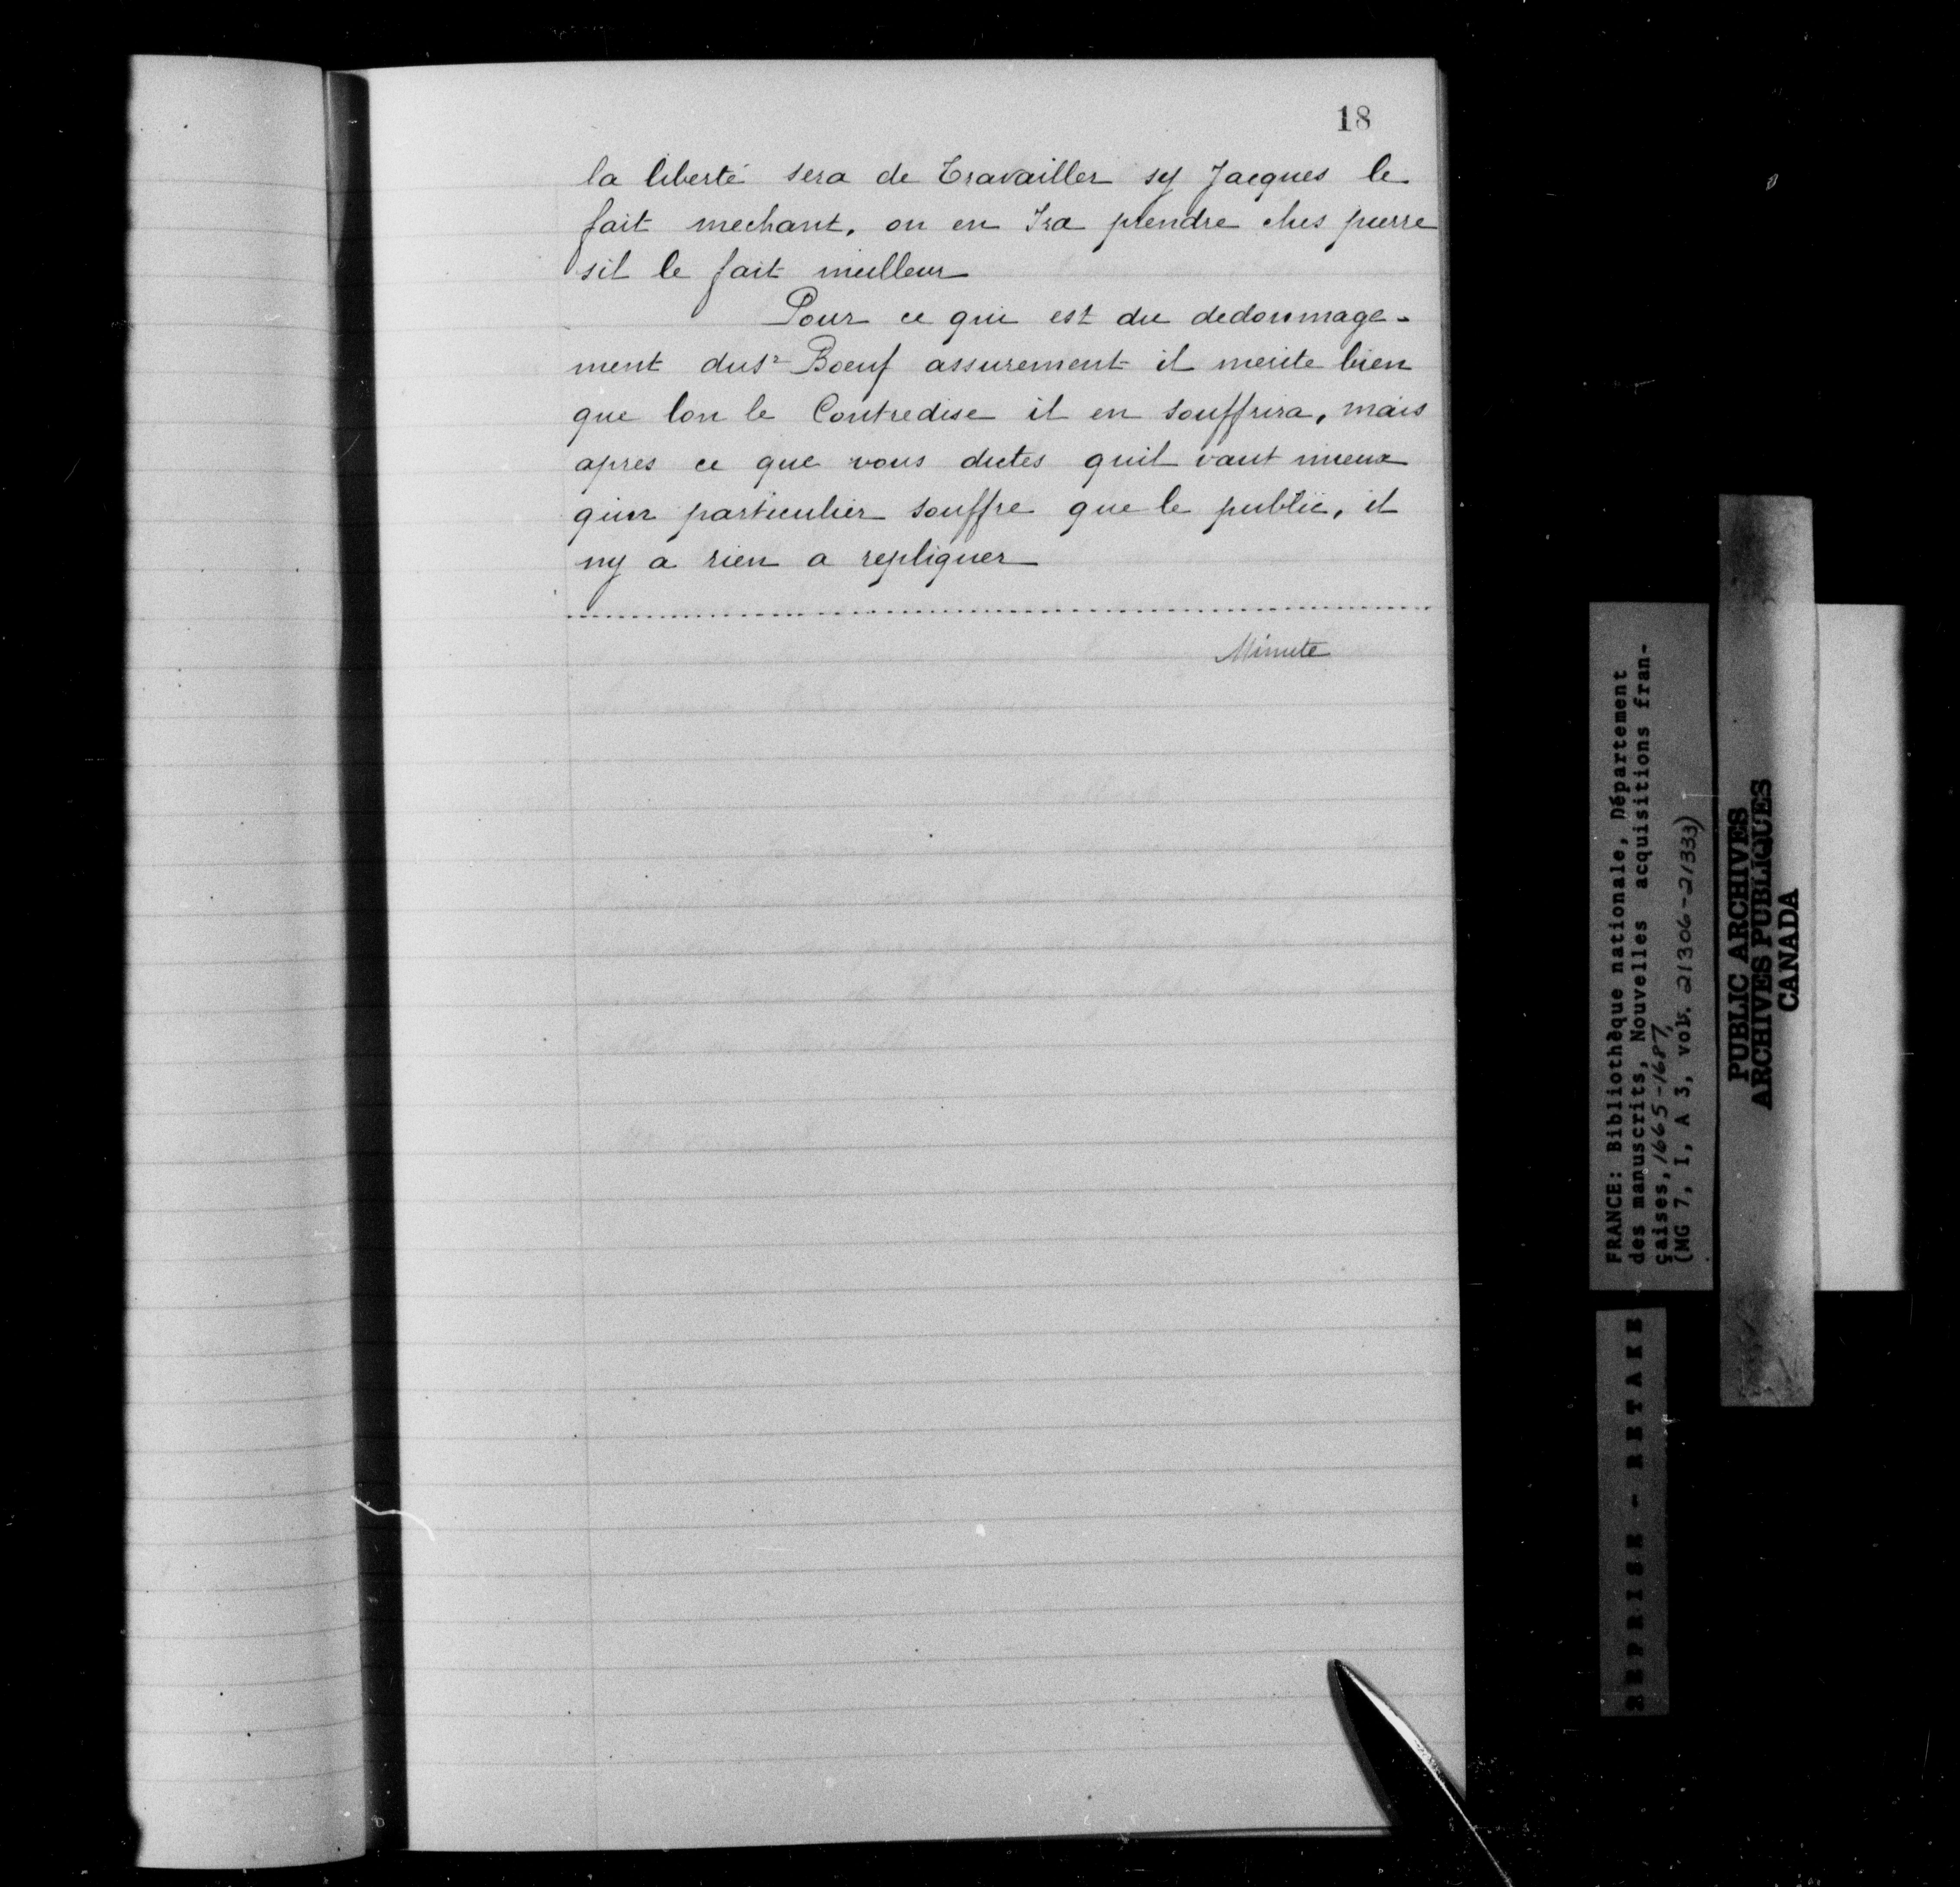 18
la liberté sera de Travailler sy Jacques le
fait mechant, on en Ira prendre ches pierre
sil le fait meilleur
Pour ce qui est du dedommage-
ment du Sr Boeuf assurement il merite bien
que lon le Contredise il en souffrira, mais
apres ce que vous dictes quil vaut mieux
quun particulier souffre que le public, il
ny a rien a repliquer
Minute
FRANCE: Bibliothèque nationale, Département
des manuscrits, Nouvelles acquisitions fran-
çaises, 1665-1687,
(MG 7, I, A 3, vol. 21306-21333)
PUBLIC ARCHIVES
ARCHIVES PUBLIQUES
CANADA
REPRISE - RETAKE